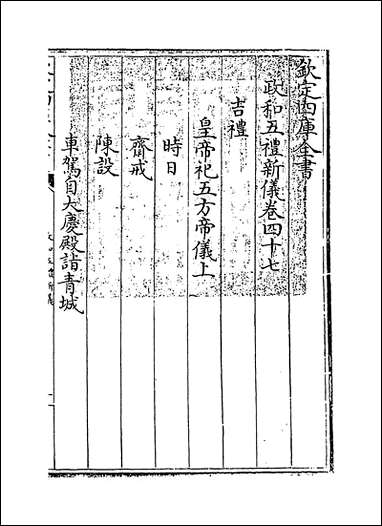 欽定四庫全書
政和五禮新儀卷四十七
吉禮
皇帝祀五方帝儀上
時日
齋戒
陳設
車駕自大慶殿詣青城